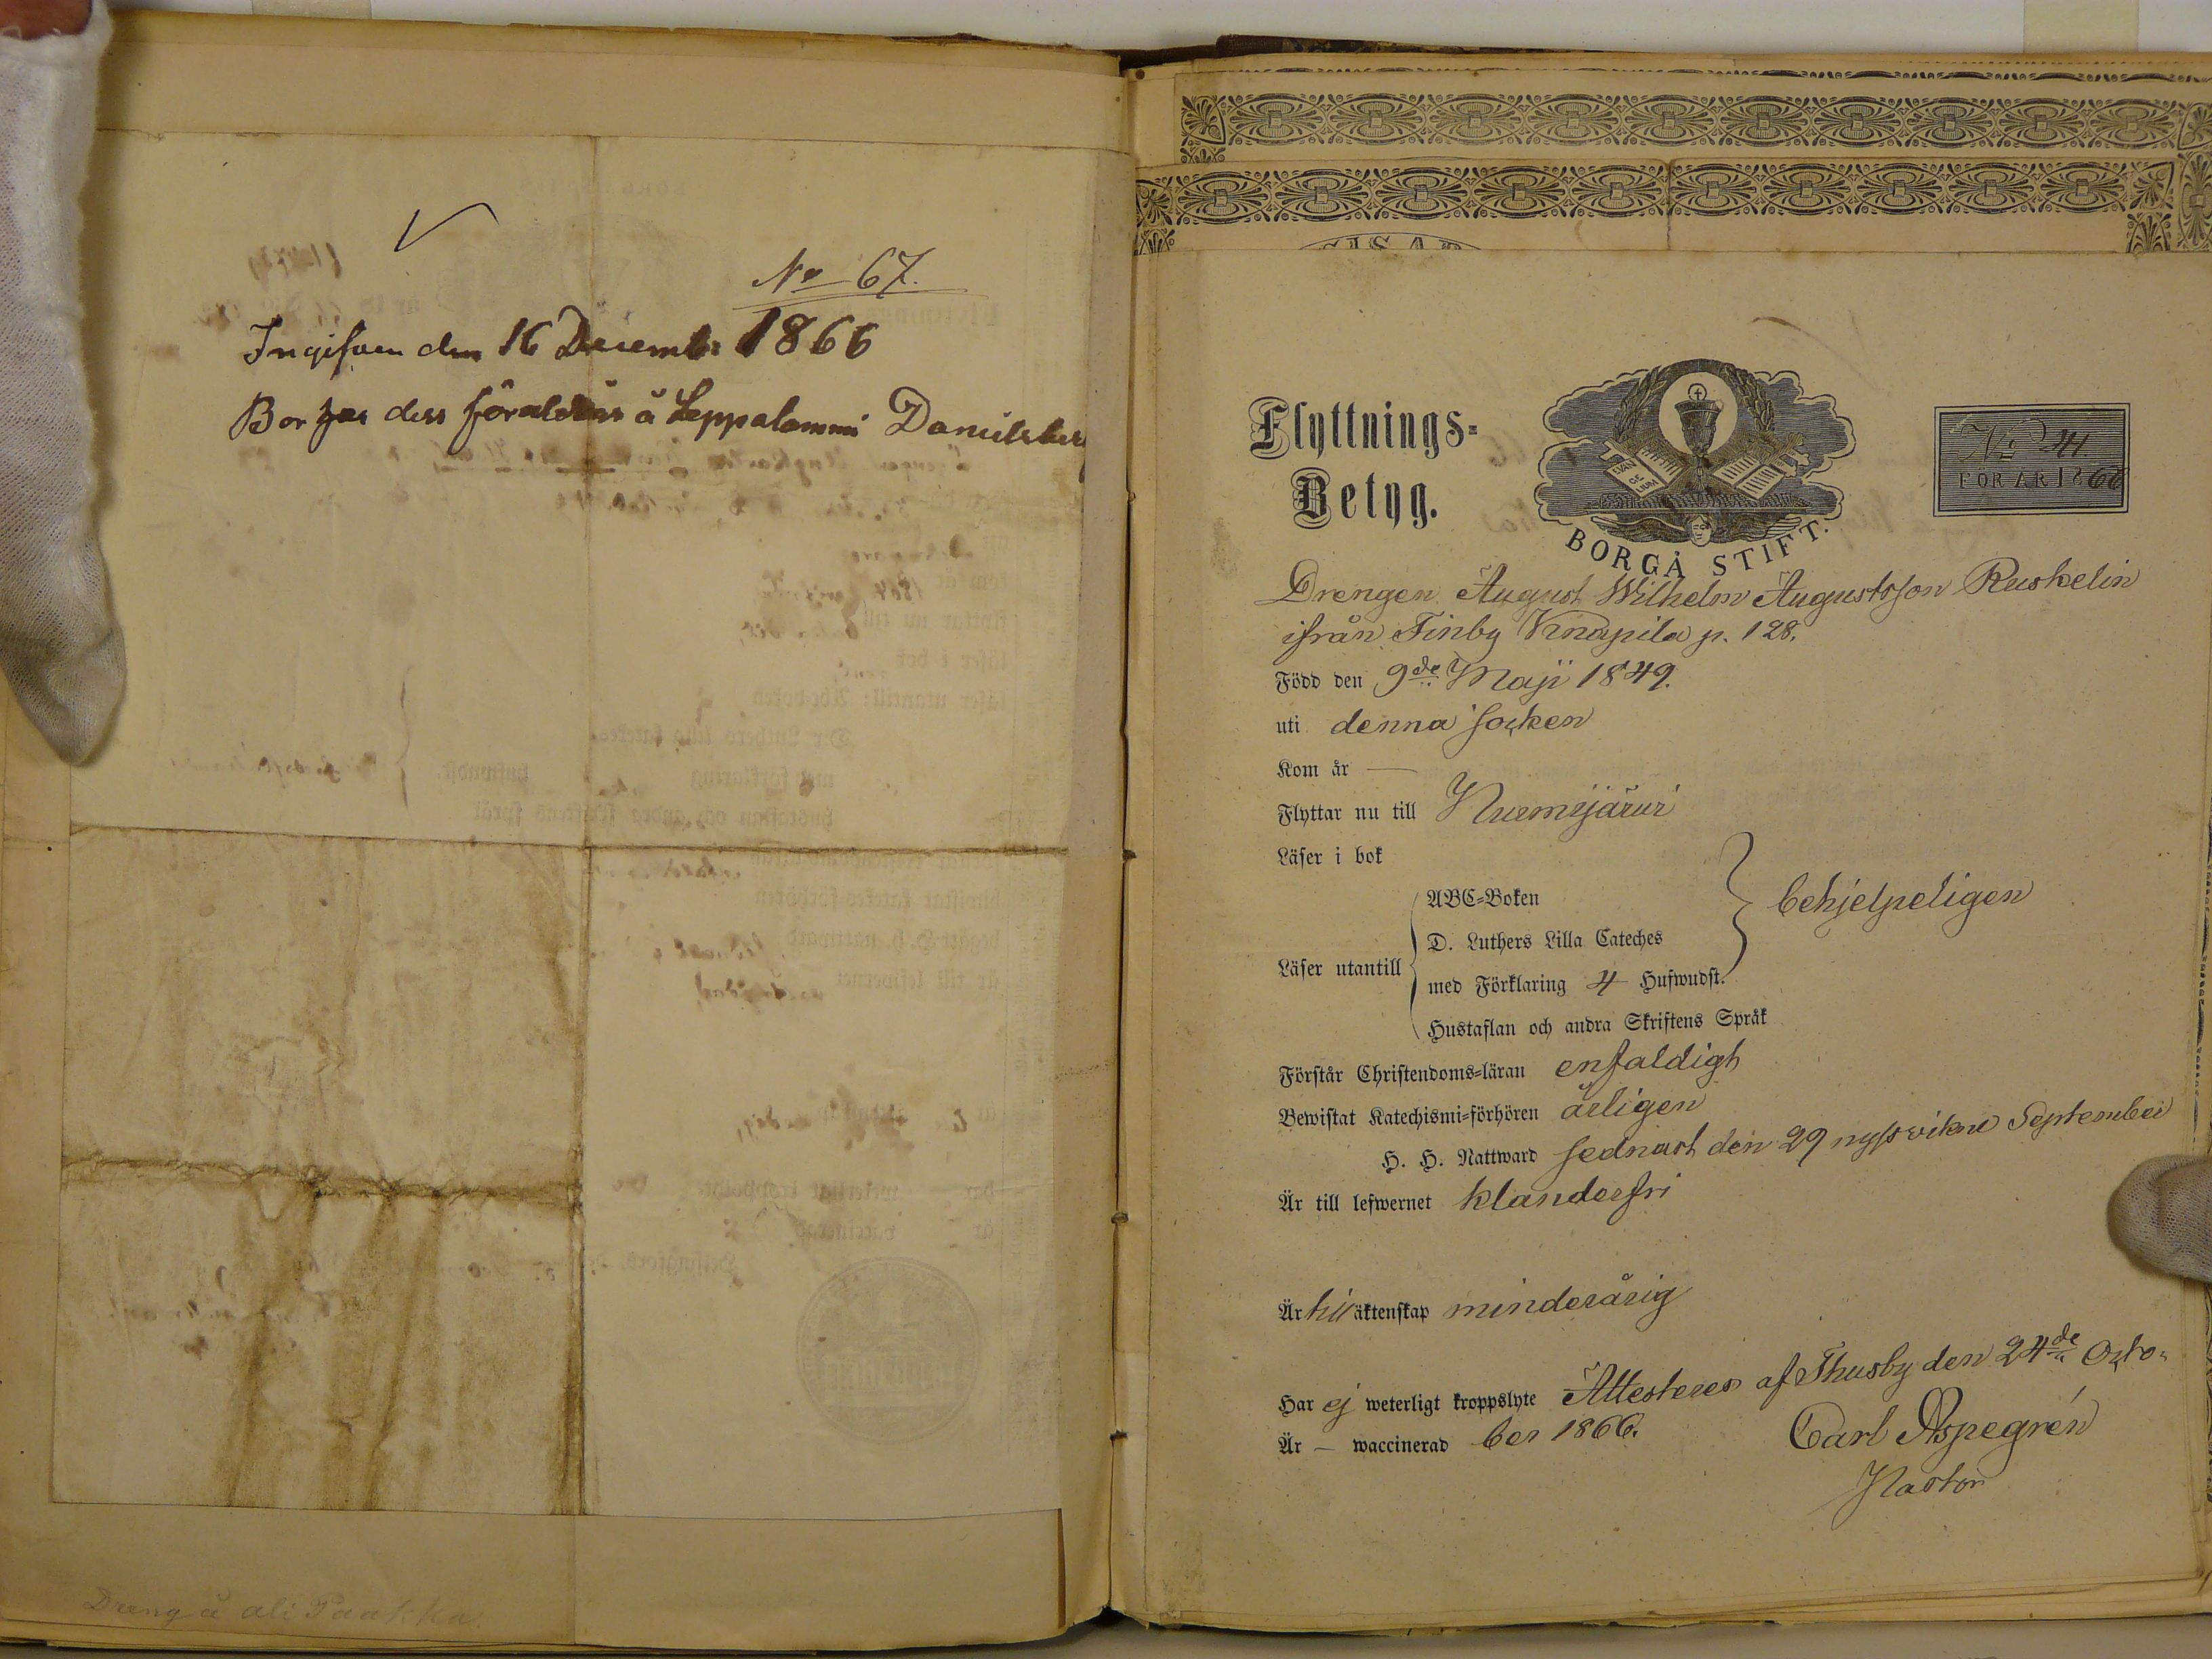 No 67.
Ingifven den 16 Decemb: 1866
Bor hos dess föräldrar å Leppalammi
Dreng å ali Paakka
Flyttnings-
Betyg.
EVAN
GE
LIUM
BORGÅ STIFT.
No 41.
FÖR ÅR 1866
Drengen August Wilhelm Augustsson Ruskelin
ifrån Finby Knapila p. 128.
Född den 9de Maji 1849.
uti denna socken
Kom år —
Flyttar nu till Nurmijärvi
Läser i bok
ABC-Boken
D. Luthers Lilla Cateches
behjelpeligen
Läser utantill
med Förklaring 4 Hufwudst.
Hustaflan och andra Skriftens Språk
Förstår Christendoms-läran enfaldigt
Bewistat Katechismi-förhören årligen
H. H. Nattward sednast den 29 nyssvikne September
Är till lefwernet klanderfri
Är till äktenskap minderårig
Har ej weterligt kroppslyte Attesteres af Thusby den 24de Octo-
Är — waccinerad ber 1866.
Carl Aspegrén
Pastor